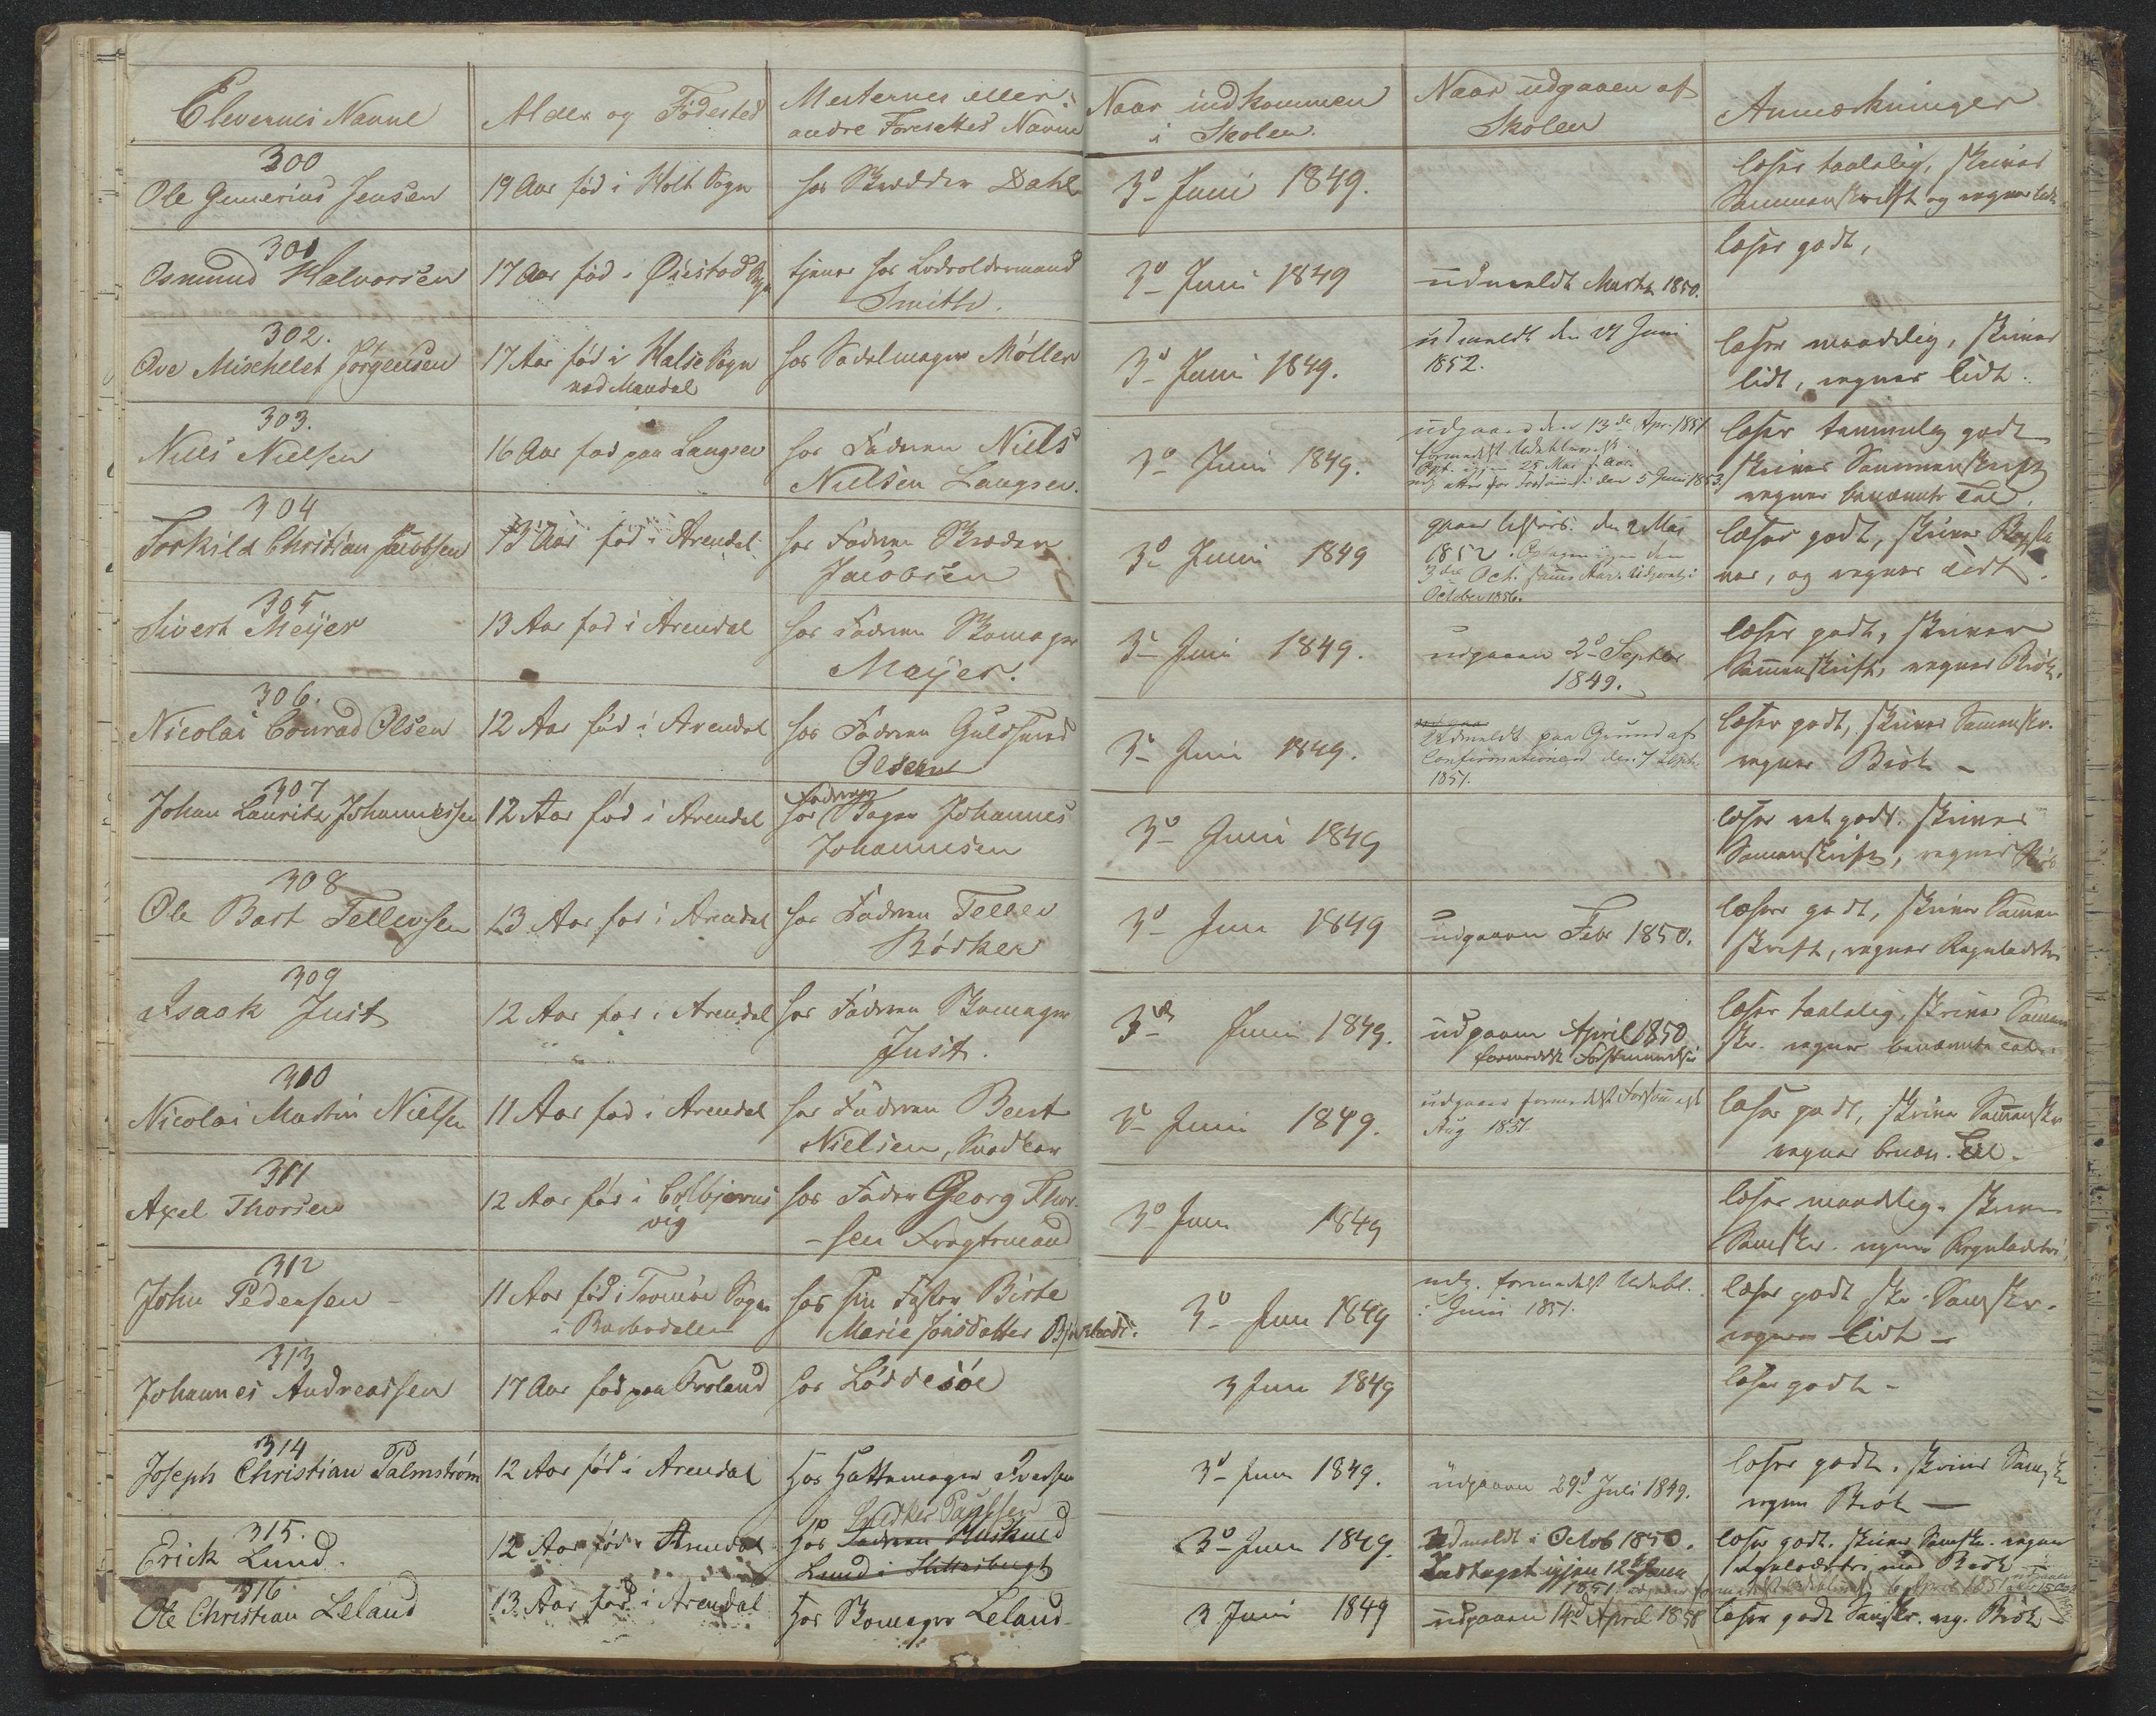 Elevernes Navne
Alder og Fødested
Mesternes eller
andre Foresattes Navne
Naar indkommen
i Skolen.
Naar udgaaen af
Skolen
Anmærkninger
300
Ole Gunerius Jensen
19 Aar fød i Holt Sogn
hos Skrædder Dahl
3d Juni 1849.
læser taalelig, skriver
Sammenskrift og regner lidt
301
Osmund Halvorsen
17 Aar fød i Øiestad Sogn
tjener hos Lodsoldermand
Smith.
3d Juni 1849
udmeldt Marts 1850.
læser godt,
302.
Ove Mischelet Jørgensen
17 Aar fød i Halse Sogn
ved Mandal
hos Sadelmager Møller
3d Juni 1849.
udmeldt den 27 Juni
1852.
læser maadelig, skriver
lidt, regner lidt.
303.
Niels Nielsen
16 Aar fød paa Langsev
hos Faderen Niels
Nielsen Langsev.
3d Juni 1849.
udgaaed den 13de Apr. 1851
formedelst Udeblivelse
Opt. igjen 25 Mai s. Aar.
udg. atter for Forsømmelse den 5 Juni 1853.
læser temmelig godt
skriver Sammenskrift
regner benævnte Tal.
304
Torkild Christian Jacobsen
13 Aar fød i Arendal
hos Faderen Skræder
Jacobsen
3d Juni 1849
den 2 Mai
1852. Optagen igjen den
3die Oct. samme Aar. Udgaaet i
October 1856.
læser godt, skriver Bogsta
ver, og regner lidt.
305
Sivert Meijer
13 Aar fød i Arendal
hos Faderen Skomager
Meijer.
3d Juni 1849.
udgaaen 2d Septbr
1849.
læser godt, skriver
Sammenskrift, regner Brøk.
306.
Nicolai Conrad Olsen
12 Aar fød i Arendal
hos Faderen Guldsmed
Olsen
3d Juni 1849.
Udmeldt paa Grund af
Confirmationen den 7 Septb.
1851.
læser godt, skriver Sammenskr.
regner Brøk –
307
Johan Lauritz Johannessen
12 Aar fød i Arendal
Faderen
hos Bager Johannes
Johannesen
3d Juni 1849
læser ret godt. skriver
Sammenskrift, regner Brøk
308
Ole Bart Tellevsen
13 Aar fød i Arendal
hos Faderen Tellev
Bødker
3d Juni 1849
udgaaen Febr 1850.
læser godt, skriver Samen
skrift, regner Reguladetri
309
Isaak Just
12 Aar fød i Arendal
hos Faderen Skomager
Just.
3d Juni 1849.
udgaaen April 1850
formedelst Forsømmelse
læser taalelig, skriver Samen
skr. regner benævnte Tal.
310
Nicolai Martin Nielsen
11 Aar fød i Arendal
hos Faderen Bent
Nielsen, Snedker
3d Juni 1849.
udgaaet formedelst Forsømmelse
Aug 1851
læser godt, skriver Sammenskr
regner benæv. Tal –
311
Axel Thorsen
12 Aar fød i Colbjørns
vig
hos Fader Georg Thor
-sen Fragtemand
3d Juni 1849
læser maadelig. skriver
Samskr. regner Reguladetri
312
John Pedersen –
11 Aar fød i Tromøe Sogn
i Barbodalen
hos sin Faster Birte
Marie Jonsdatter
3d Juni 1849
udg. formedelst Udebl.
i Juni 1851.
læser godt skr. Samskr.
regner lidt –
313
Johannes Andreassen
17 Aar fød paa Froland
hos Løddesøe
3 Juni 1849
læser godt –
314
Joseph Christian Palmstrøm
12 Aar fød i Arendal
hos Hattemager Iversen
3d Juni 1849.
udgaaen 29d Juli 1849.
læser godt. skriver Samskr
regner Brøk –
315.
Erick Lund.
12 Aar fød i Arendal
Snedker Paulsen
hos Faderen Matros
Lund i Kittelsbugt
3d Juni 1849.
Udmeldt i Octob 1850.
Indtaget igjen 12te Janu
1851.
læser godt. skriver Samskr. regner
316.
Ole Christian Leland
13 Aar fød i Arendal
hos Skomager Leland
3 Juni 1849
udgaaen 14d April 1850
læser godt Samskr. reg. Brøk –